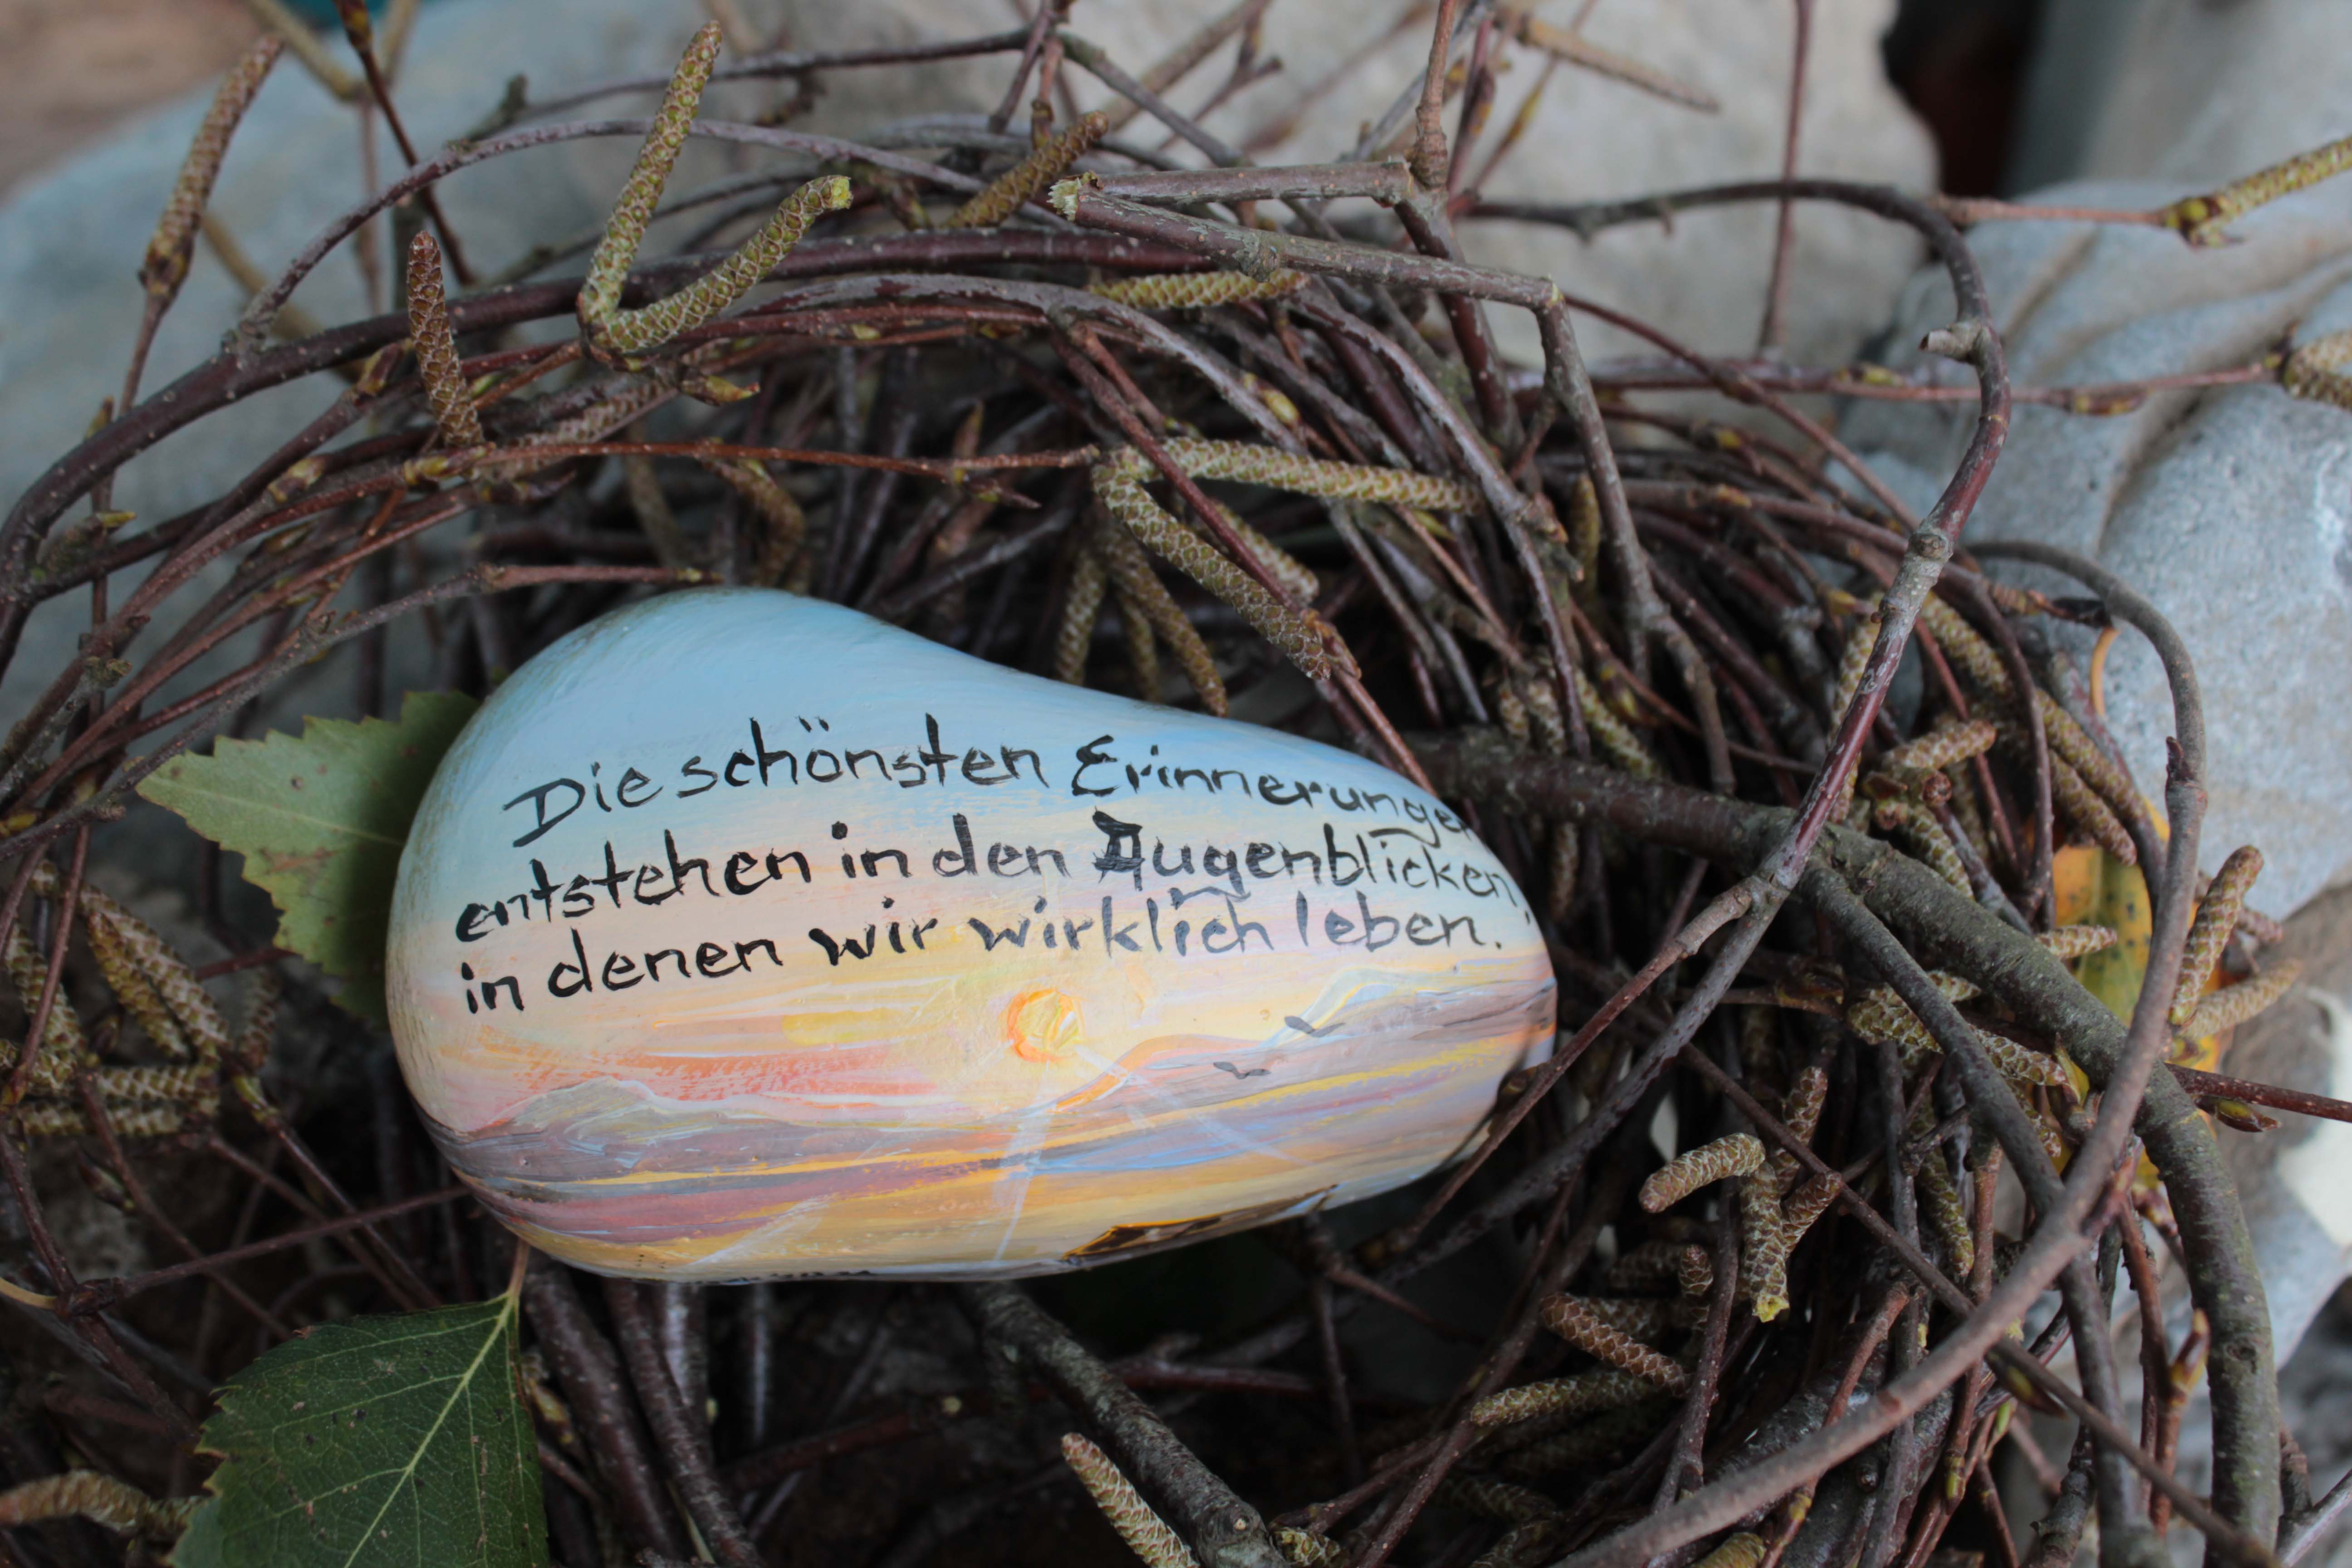 Die schönsten Erinnerungen
entstehen in den Augenblicken,
in denen wir wirklich leben.